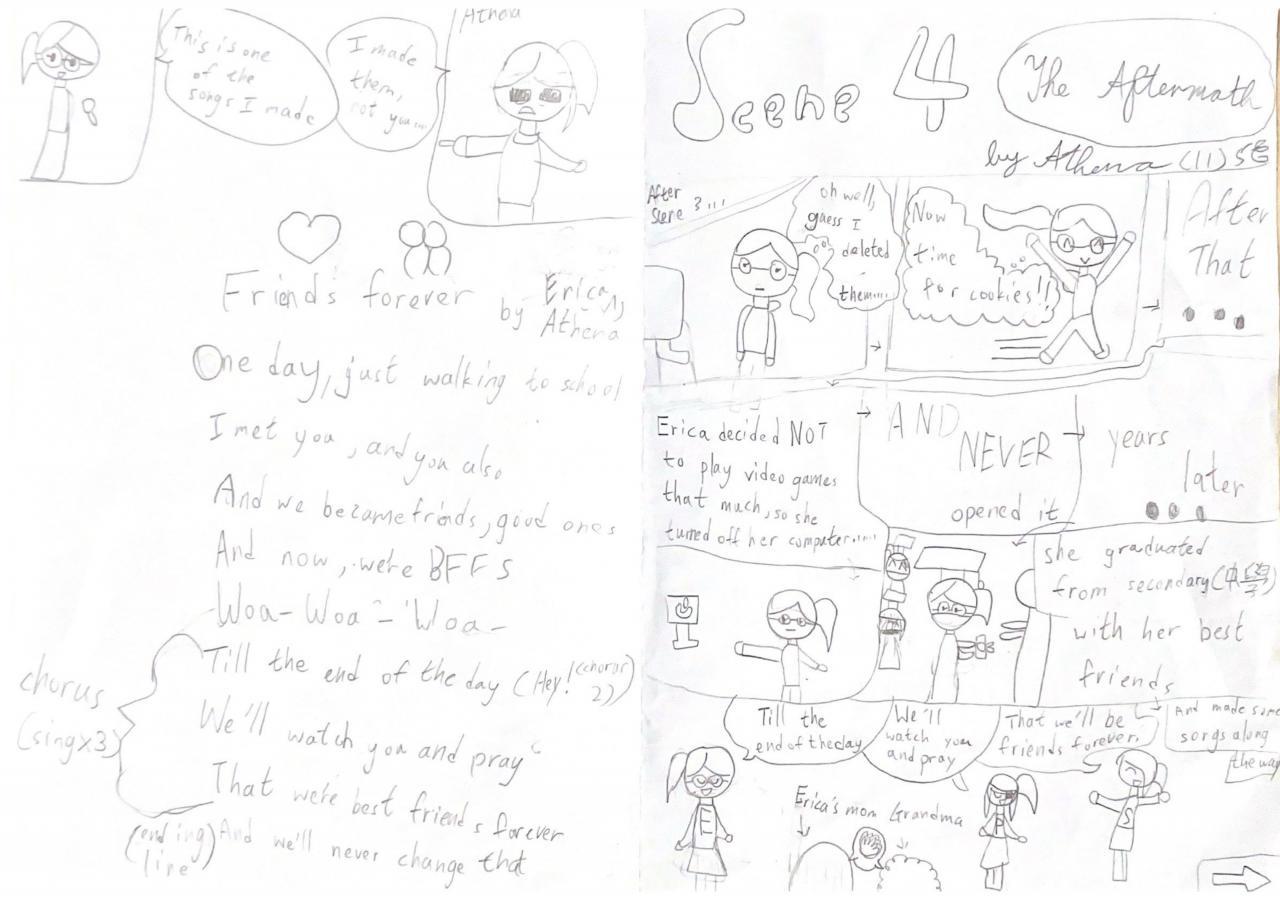 This is one
of the
songs I made
I made
them,
not you....
Athena
Friends forever
by Erica,
Athena
One day, just walking to school
I met you, and you also
And we became friends, good ones
And now, we're BFFS
Woa-Woa-Woa-
chorus
(sing x3)
Till the end of the day (Hey! (chorus 2))
We'll watch you and pray
That we're best friends forever
(ending
line)
And we'll never change that
Scene 4
The Aftermath
by Athena (11) 5
After
Scene 3....
oh well,
guess I
deleted
them....
Now
time
for cookies!!
After
That
...
Erica decided NOT
to play video games
that much, so she
turned off her computer......
AND
NEVER
opened it
years
later
...
she graduated
from secondary (中學)
with her best
friends
Till the
end of the day
We'll
watch you
and pray
That we'll be
friends forever.
And made some
songs along
the way
Erica's mom Grandma
E
P
S